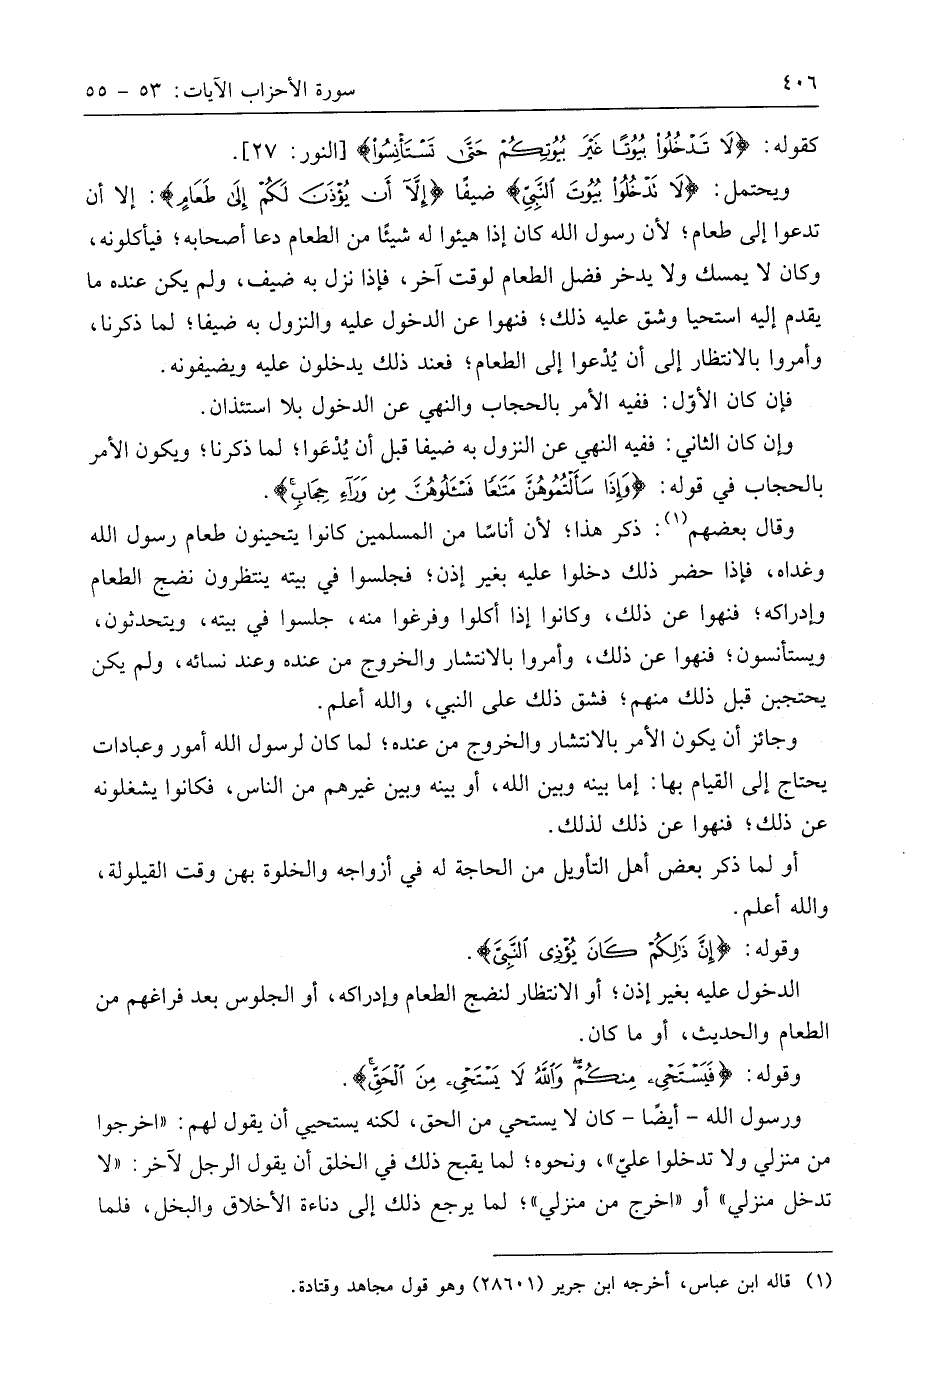 ٤٠٦
سورة الأحزاب الآيات: ٥٣ - ٥٥
كقوله: ﴿لَا تَدْخُلُوا۟ بُيُوتًا غَيْرَ بُيُوتِكُمْ حَتَّىٰ تَسْتَأْنِسُوا۟﴾ [النور: ٢٧].
ويحتمل: ﴿لَا تَدْخُلُوا۟ بُيُوتَ ٱلنَّبِىِّ﴾ ضيفًا ﴿إِلَّآ أَن يُؤْذَنَ لَكُمْ إِلَىٰ طَعَامٍ﴾: إلا أن
تدعوا إلى طعام؛ لأن رسول الله كان إذا هيئوا له شيئًا من الطعام دعا أصحابه؛ فيأكلونه،
وكان لا يمسك ولا يدخر فضل الطعام لوقت آخر، فإذا نزل به ضيف، ولم يكن عنده ما
يقدم إليه استحيا وشق عليه ذلك؛ فنهوا عن الدخول عليه والنزول به ضيفا؛ لما ذكرنا،
وأمروا بالانتظار إلى أن يُدْعوا إلى الطعام؛ فعند ذلك يدخلون عليه ويضيفونه.
فإن كان الأوّل: ففيه الأمر بالحجاب والنهي عن الدخول بلا استئذان.
وإن كان الثاني: ففيه النهي عن النزول به ضيفا قبل أن يُدْعَوا؛ لما ذكرنا؛ ويكون الأمر
بالحجاب في قوله: ﴿وَإِذَا سَأَلْتُمُوهُنَّ مَتَـٰعًا فَسْـَٔلُوهُنَّ مِن وَرَآءِ حِجَابٍۚ﴾.
وقال بعضهم(١): ذكر هذا؛ لأن أناسًا من المسلمين كانوا يتحينون طعام رسول الله
وغداه، فإذا حضر ذلك دخلوا عليه بغير إذن؛ فجلسوا في بيته ينتظرون نضج الطعام
وإدراكه؛ فنهوا عن ذلك، وكانوا إذا أكلوا وفرغوا منه، جلسوا في بيته، ويتحدثون،
ويستأنسون؛ فنهوا عن ذلك، وأمروا بالانتشار والخروج من عنده وعند نسائه، ولم يكن
يحتجبن قبل ذلك منهم؛ فشق ذلك على النبي، والله أعلم.
وجائز أن يكون الأمر بالانتشار والخروج من عنده؛ لما كان لرسول الله أمور وعبادات
يحتاج إلى القيام بها: إما بينه وبين الله، أو بينه وبين غيرهم من الناس، فكانوا يشغلونه
عن ذلك؛ فنهوا عن ذلك لذلك.
أو لما ذكر بعض أهل التأويل من الحاجة له في أزواجه والخلوة بهن وقت القيلولة،
والله أعلم.
وقوله: ﴿إِنَّ ذَٰلِكُمْ كَانَ يُؤْذِى ٱلنَّبِىَّ﴾.
الدخول عليه بغير إذن؛ أو الانتظار لنضج الطعام وإدراكه، أو الجلوس بعد فراغهم من
الطعام والحديث، أو ما كان.
وقوله: ﴿فَيَسْتَحْىِۦ مِنكُمْۖ وَٱللَّهُ لَا يَسْتَحْىِۦ مِنَ ٱلْحَقِّۚ﴾.
ورسول الله - أيضًا - كان لا يستحي من الحق، لكنه يستحيي أن يقول لهم: «اخرجوا
من منزلي ولا تدخلوا عليّ»، ونحوه؛ لما يقبح ذلك في الخلق أن يقول الرجل لآخر: «لا
تدخل منزلي» أو «اخرج من منزلي»؛ لما يرجع ذلك إلى دناءة الأخلاق والبخل، فلما
(١) قاله ابن عباس، أخرجه ابن جرير (٢٨٦٠١) وهو قول مجاهد وقتادة.